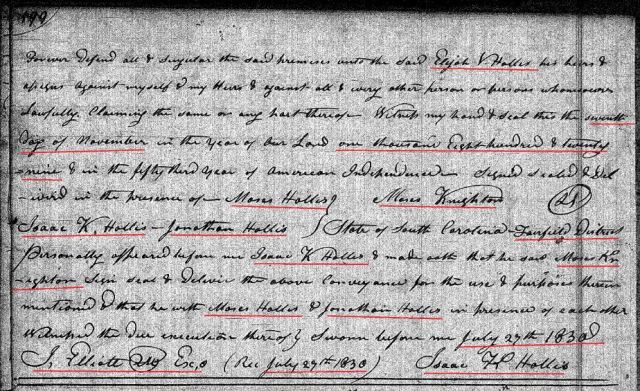 199
forever defend all & singular the said premises unto the said Elijah V Hollis his heirs &
assigns against myself & my Heirs & against all & every other person or persons whomsoever
Lawfully Claiming the same or any part thereof Witness my hand & seal this the seventh
Day of November in the year of Our Lord one thousand Eight hundred & twenty
nine & in the fifty third year of American Independence Signed sealed & Del
-iverd in the presence of Moses Hollis } Moses Knighton
Isaac K. Hollis - Jonathan Hollis } State of South Carolina - Fairfield District
Personally appeared before me Isaac K Hollis & made oath that he saw Moses Kn
ighton Sign seal & deliver the above Conveyance for the use & purposes therein
mentioned & that he with Moses Hollis & Jonathan Hollis in presence of each other
Witnessed the due execution thereof } Sworn before me July 27th 1830
J. Elliott Esqo (Rec July 27th 1830) Isaac K Hollis